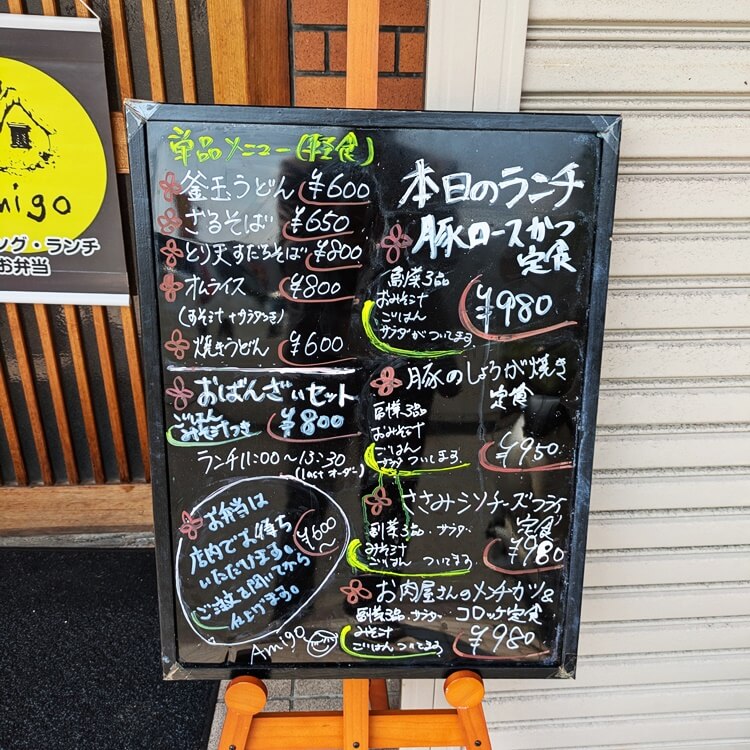 amigo
ング・ランチ
お弁当
単品メニュー(軽食)
釜玉うどん ¥600
ざるそば ¥650
とり天すだちそば ¥800
オムライス ¥800
(みそ汁+サラダつき)
焼きうどん ¥600
おばんざいセット
ごはん
みそ汁つき ¥800
ランチ11:00〜13:30
(last オーダー)
お弁当は ¥600〜
店内でお待ち
いただけます。
ご注文を聞いてから
仕上げます。
Amigo
本日のランチ
豚ロースかつ
定食
副菜3品
おみそ汁
ごはん
サラダがついてます。
¥980
豚のしょうが焼き
定食
副菜3品
おみそ汁
ごはん
サラダ ついてます。
¥950
ささみシソチーズフライ
定食
副菜3品・サラダ
みそ汁
ごはん ついてます。
¥980
お肉屋さんのメンチカツ&
コロッケ定食
副菜3品・サラダ
みそ汁
ごはん ついてます。
¥980